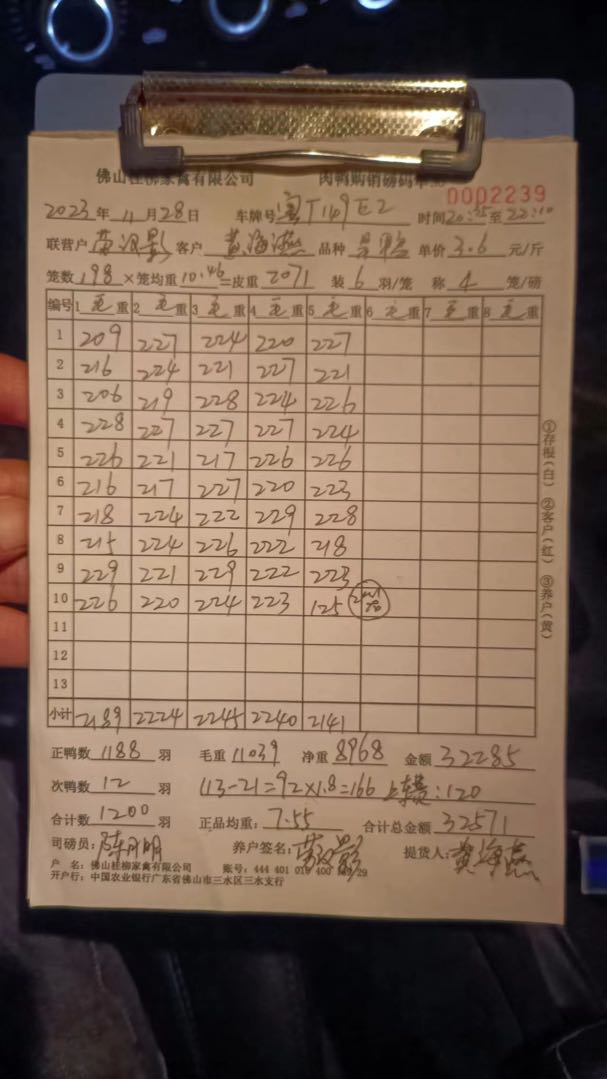 佛山桂柳家禽有限公司 肉鸭购销磅码单
0002239
2023年 11月28日 车牌号 粤T149E2 时间20:35至22:10
联营户 客户 黄海燕 品种 单价 3.6 元/斤
笼数 198 ×笼均重 10.46 =皮重 2071 装 6 羽/笼 称 4 笼/磅
编号 1 毛重 2 毛重 3 毛重 4 毛重 5 毛重 6 毛重 7 毛重 8 毛重
1 209 227 224 220 227
2 216 224 221 227 221
3 206 219 228 224 226
4 228 227 227 227 224
5 226 221 217 226 226
6 216 217 227 220 223
7 218 224 222 229 228
8 215 224 226 222 218
9 229 221 229 222 223
10 226 220 224 223 125
11
12
13
小计 2189 2224 2245 2240 2141
①存根(白) ②客户(红) ③养户(黄)
正鸭数 1188 羽 毛重 11039 净重 8968 金额 32285
次鸭数 12 羽 113-21=92×1.8=166 上车费:120
合计数 1200 羽 正品均重: 7.55 合计总金额 32571
司磅员: 养户签名: 提货人: 黄海燕
户 名: 佛山桂柳家禽有限公司 账号: 444 401 010 400 29
开户行: 中国农业银行广东省佛山市三水区三水支行